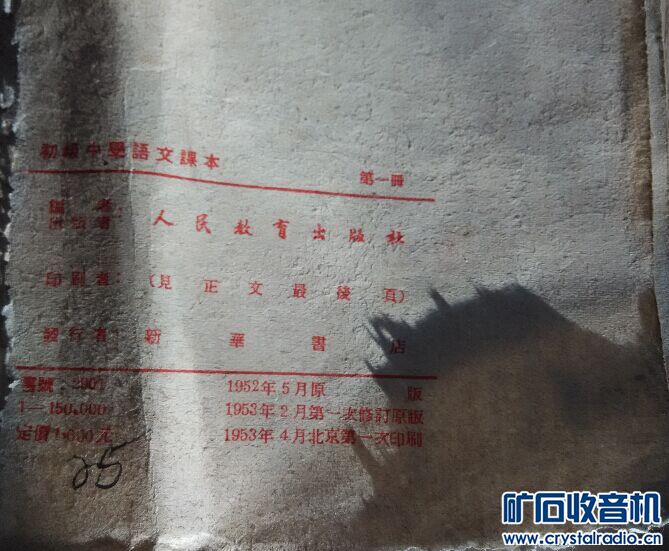 初級中學語文課本
第一冊
編者
出版者：人民教育出版社
印刷者：（見正文最後頁）
發行者：新華書店
書號：2001 1952年5月原版
1—150,000 1953年2月第一次修訂原版
定價1,600元 1953年4月北京第一次印刷
25
矿石收音机
www.crystalradio.cn